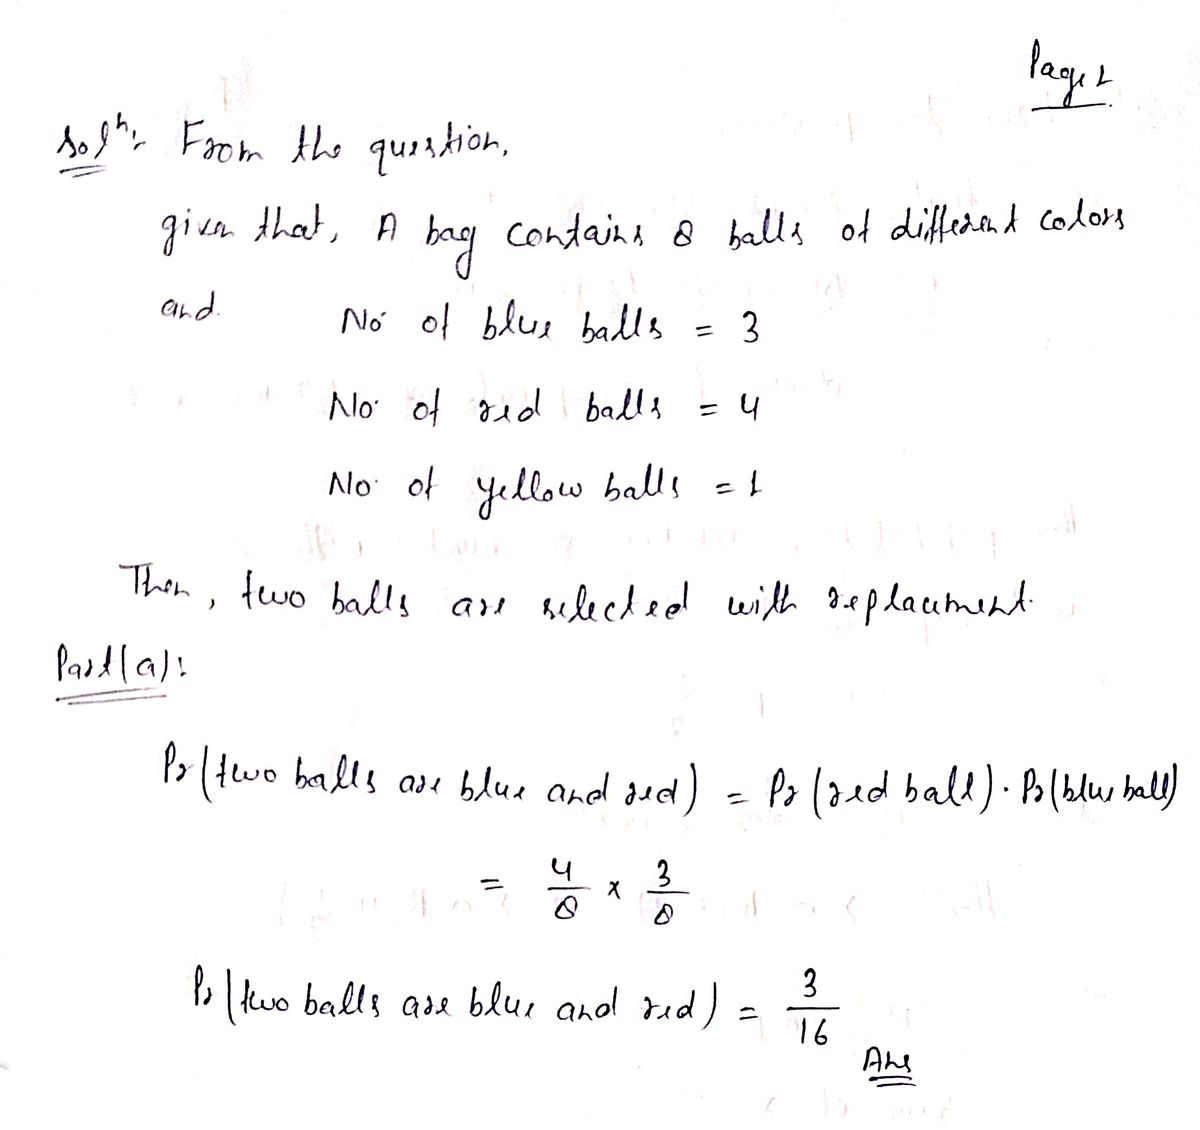 Page 1
Solⁿ:- From the question,
given that, A bag contains 8 balls of different colors
and. No. of blue balls = 3
No. of red balls = 4
No. of yellow balls = 1
Then, two balls are selected with replacement.
Part(a):
Pr(two balls are blue and red) = Pr(red ball) · Pr(blue ball)
= 4/8 × 3/8
Pr(two balls are blue and red) = 3/16
Ans